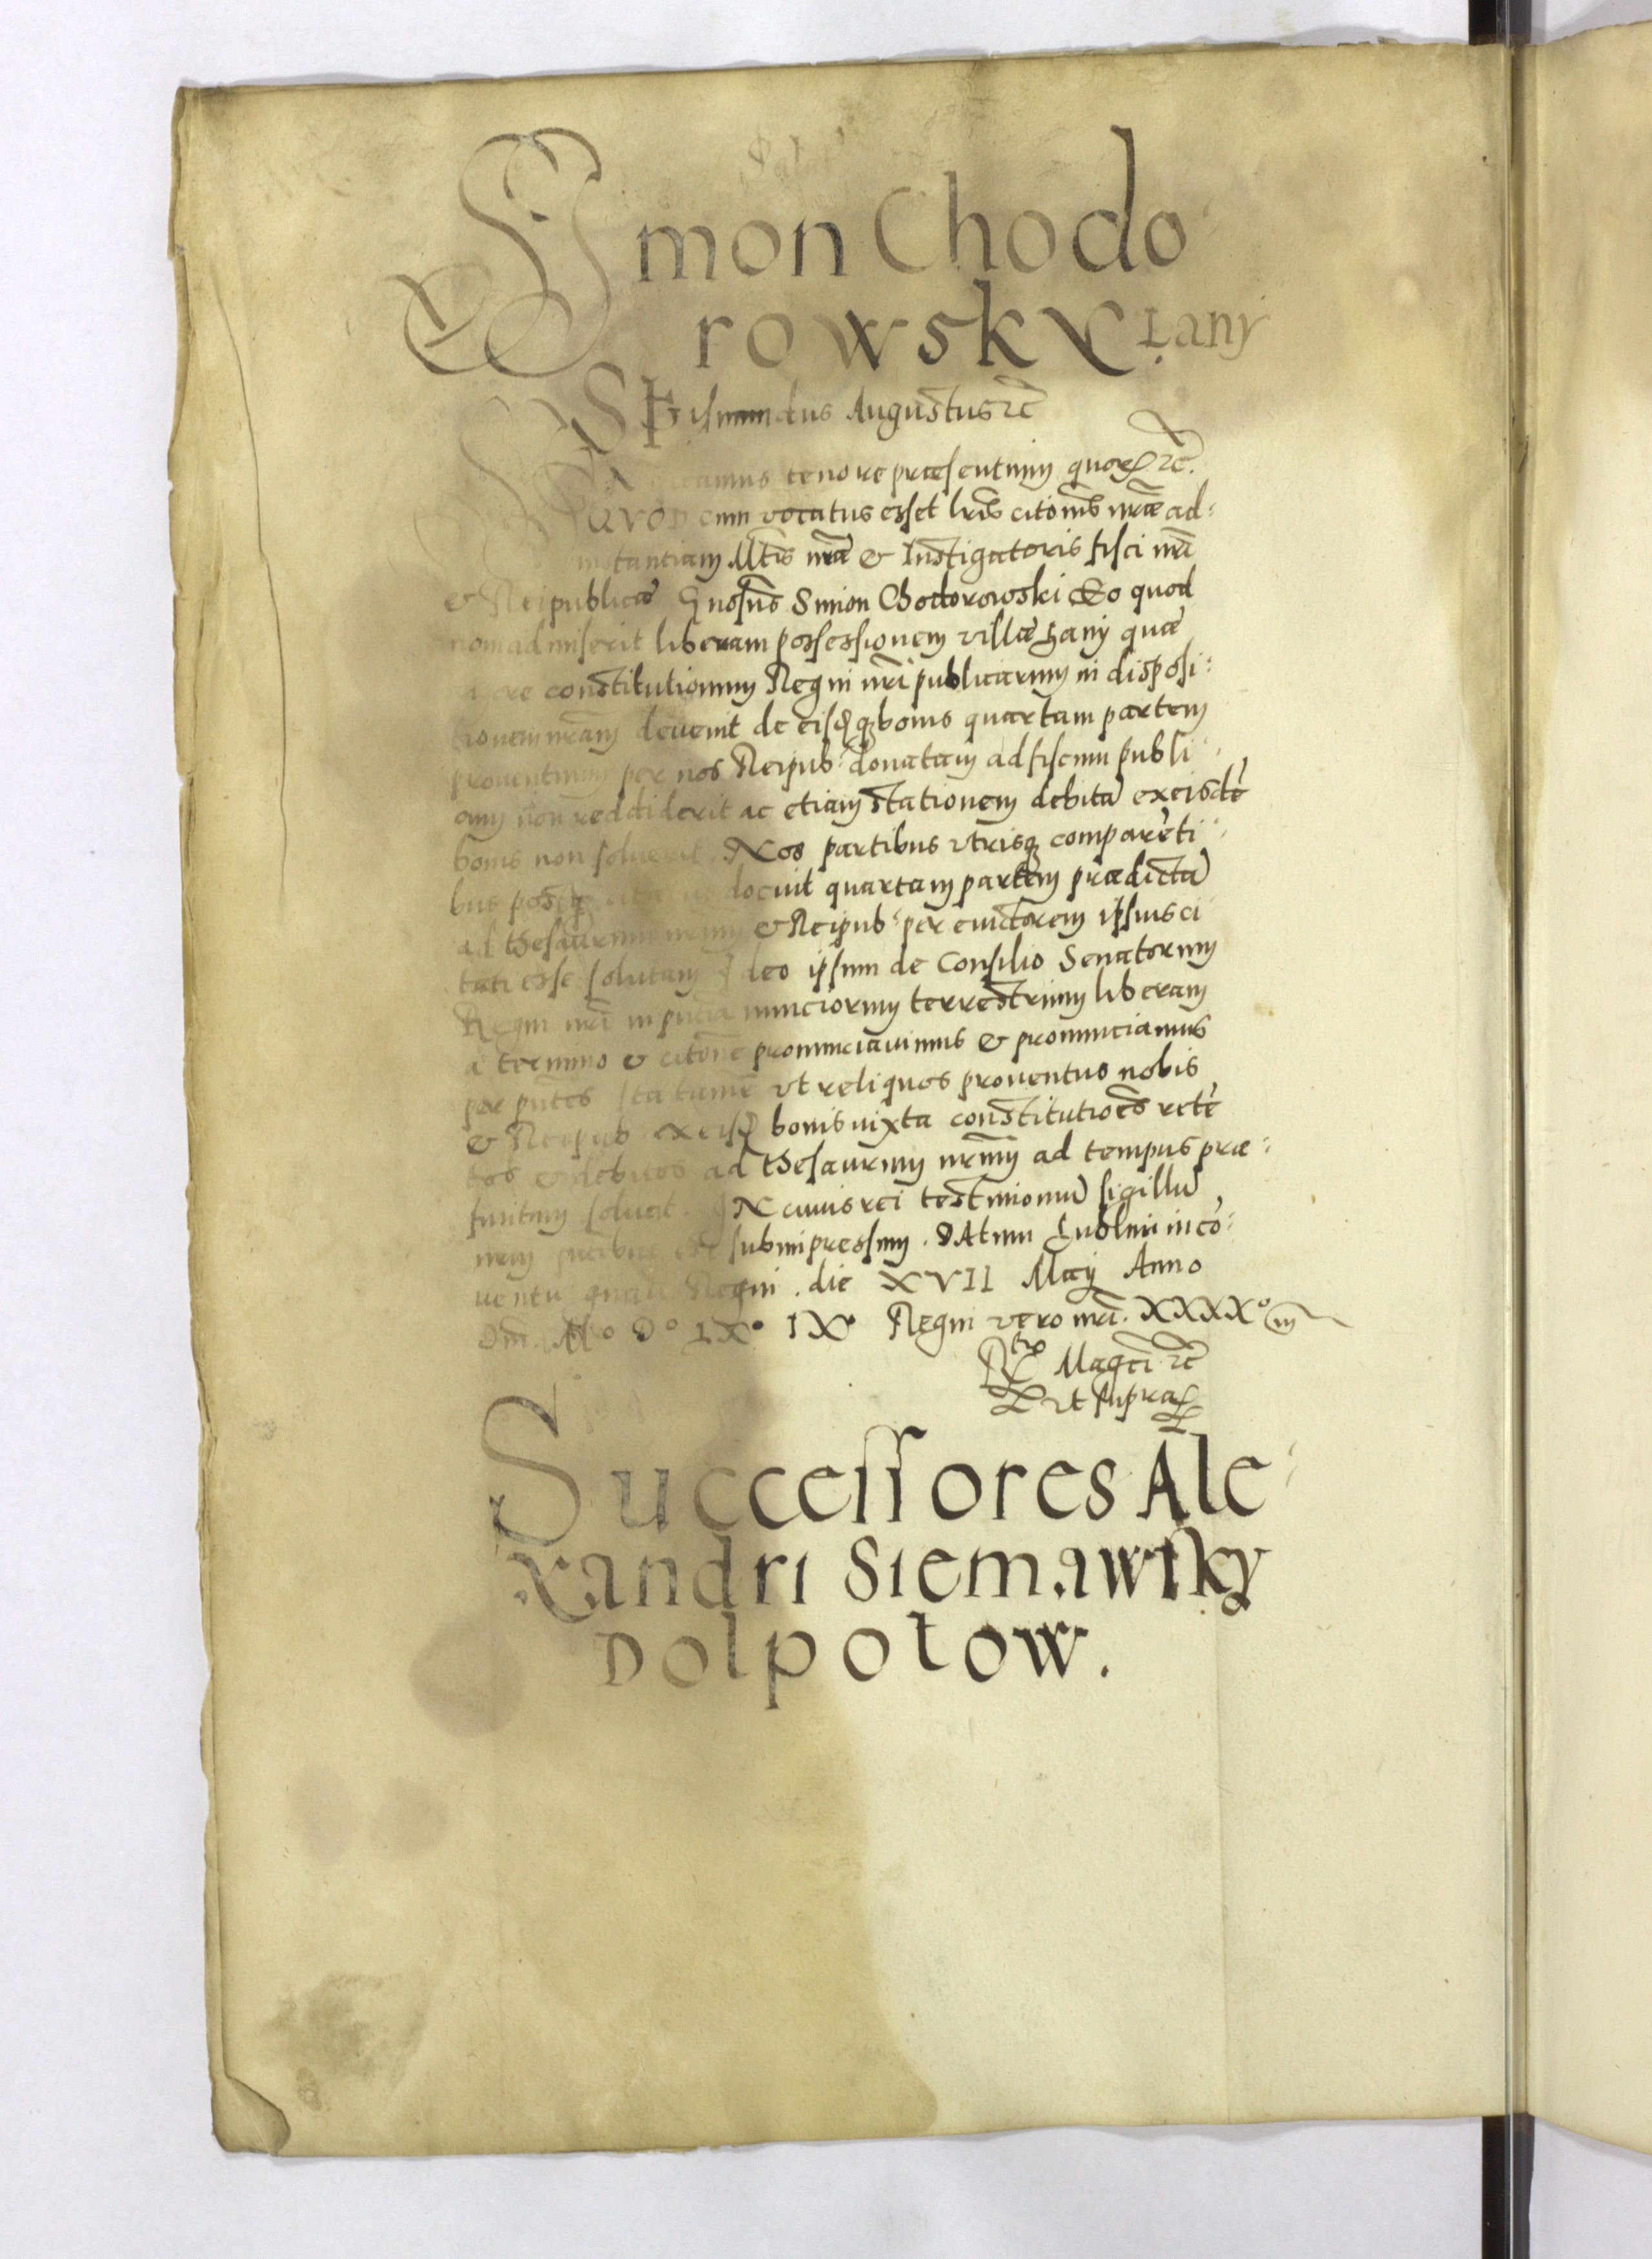 Simon Chodo
rowsky Łany
SIGismundus Augustus etc
tenore præsentium quorum etc.
QVOD cum vocatus esset lris citōnis nræ ad
instantiam Mtis nræ & Instigatoris fisci nri
& Reipublicæ Gnosus Simon Chodorowski Eo quod
non admiserit liberam possessionem villæ Łany quæ
iure constitutionum Regni nri publicarum in disposi:
tionem nram devenit de eisdemque bonis quartam partem
proventuum per nos Reipub: donatam ad fiscum publi
cum non reddiderit ac etiam stationem debitā ex eisdē
bonis non solverit. Nos partibus vtrisque comparēti
bus docuit quartam partem prædictā
ad thesaurum nrum & Reipub: per ipsius ci
tati esse solutam Ideo ipsum de Consilio Senatorum
Regni nri in pntia nunciorum terrestrium liberum
à termino & citōne pronunciavimus & pronunciamus
per pntes Ita tamē vt reliquos proventus nobis
& Reipub ex eisdem bonis iuxta constitutiōes retē
tos & debitos ad thesaurum nrum ad tempus præ:
finitum solvat. IN cuius rei testimoniū sigillū
nrum pntibus est subimpressum. DAtum Lublini in cō:
ventu gnali Regni. die XVII Maij Anno
Dni. Mº Dº LXº IXº Regni vero nri. XXXXº
Rtio Magci etc
vt supra
Successores Ale
xandri Siemawsky
Dolpotow.